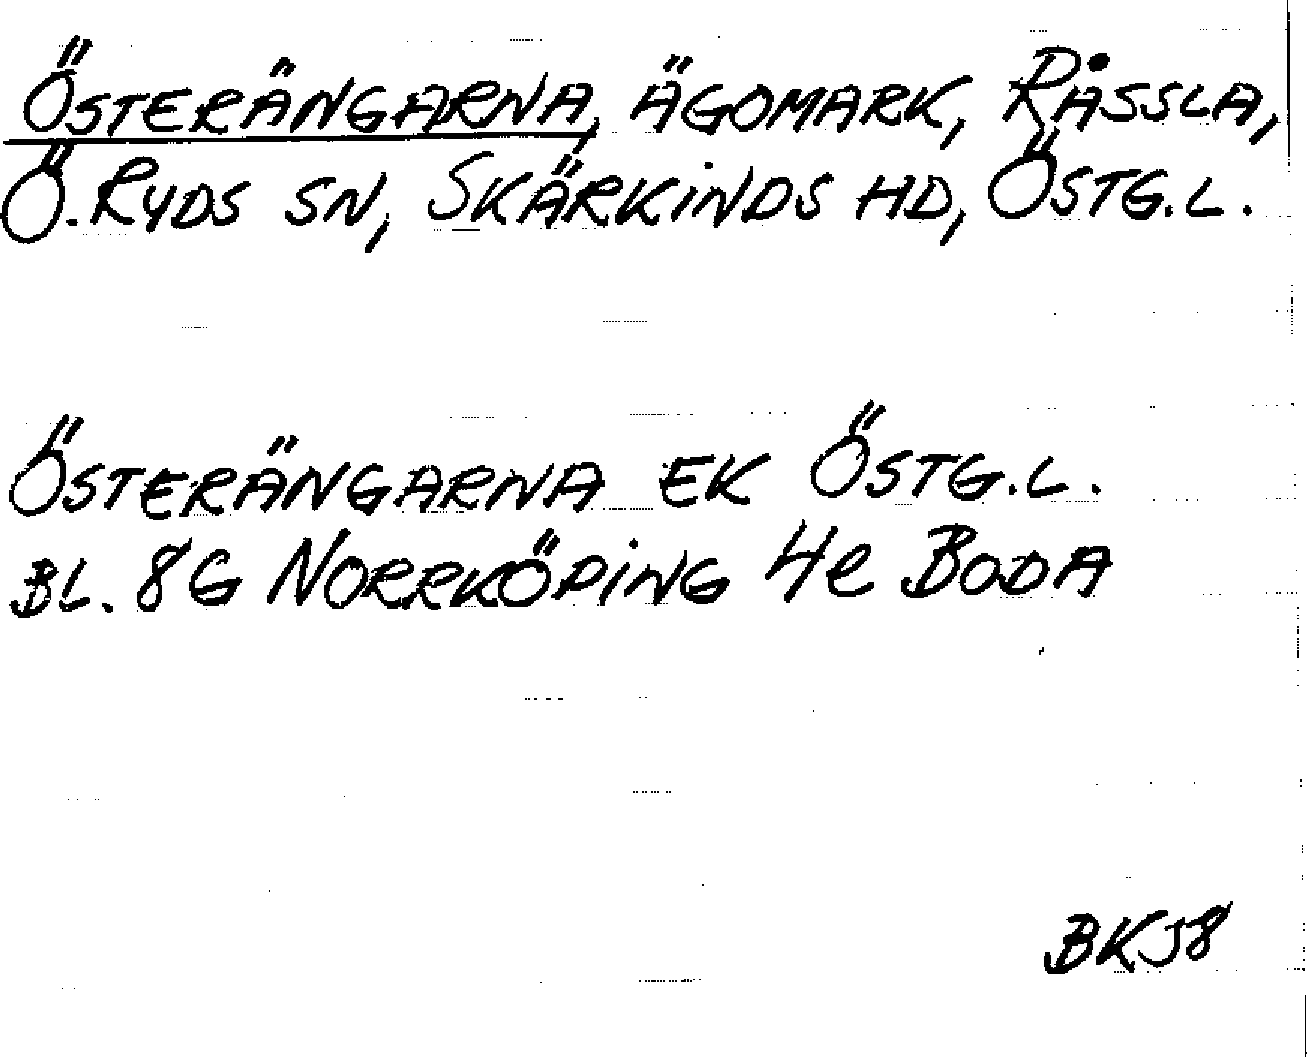 ÖSTERÄNGARNA, ÄGOMARK, RÅSSLA,
Ö. RYDS SN, SKÄRKINDS HD, ÖSTG.L.
ÖSTERÄNGARNA EK ÖSTG.L.
BL. 8G NORRKÖPING 4e BODA
BKJ8